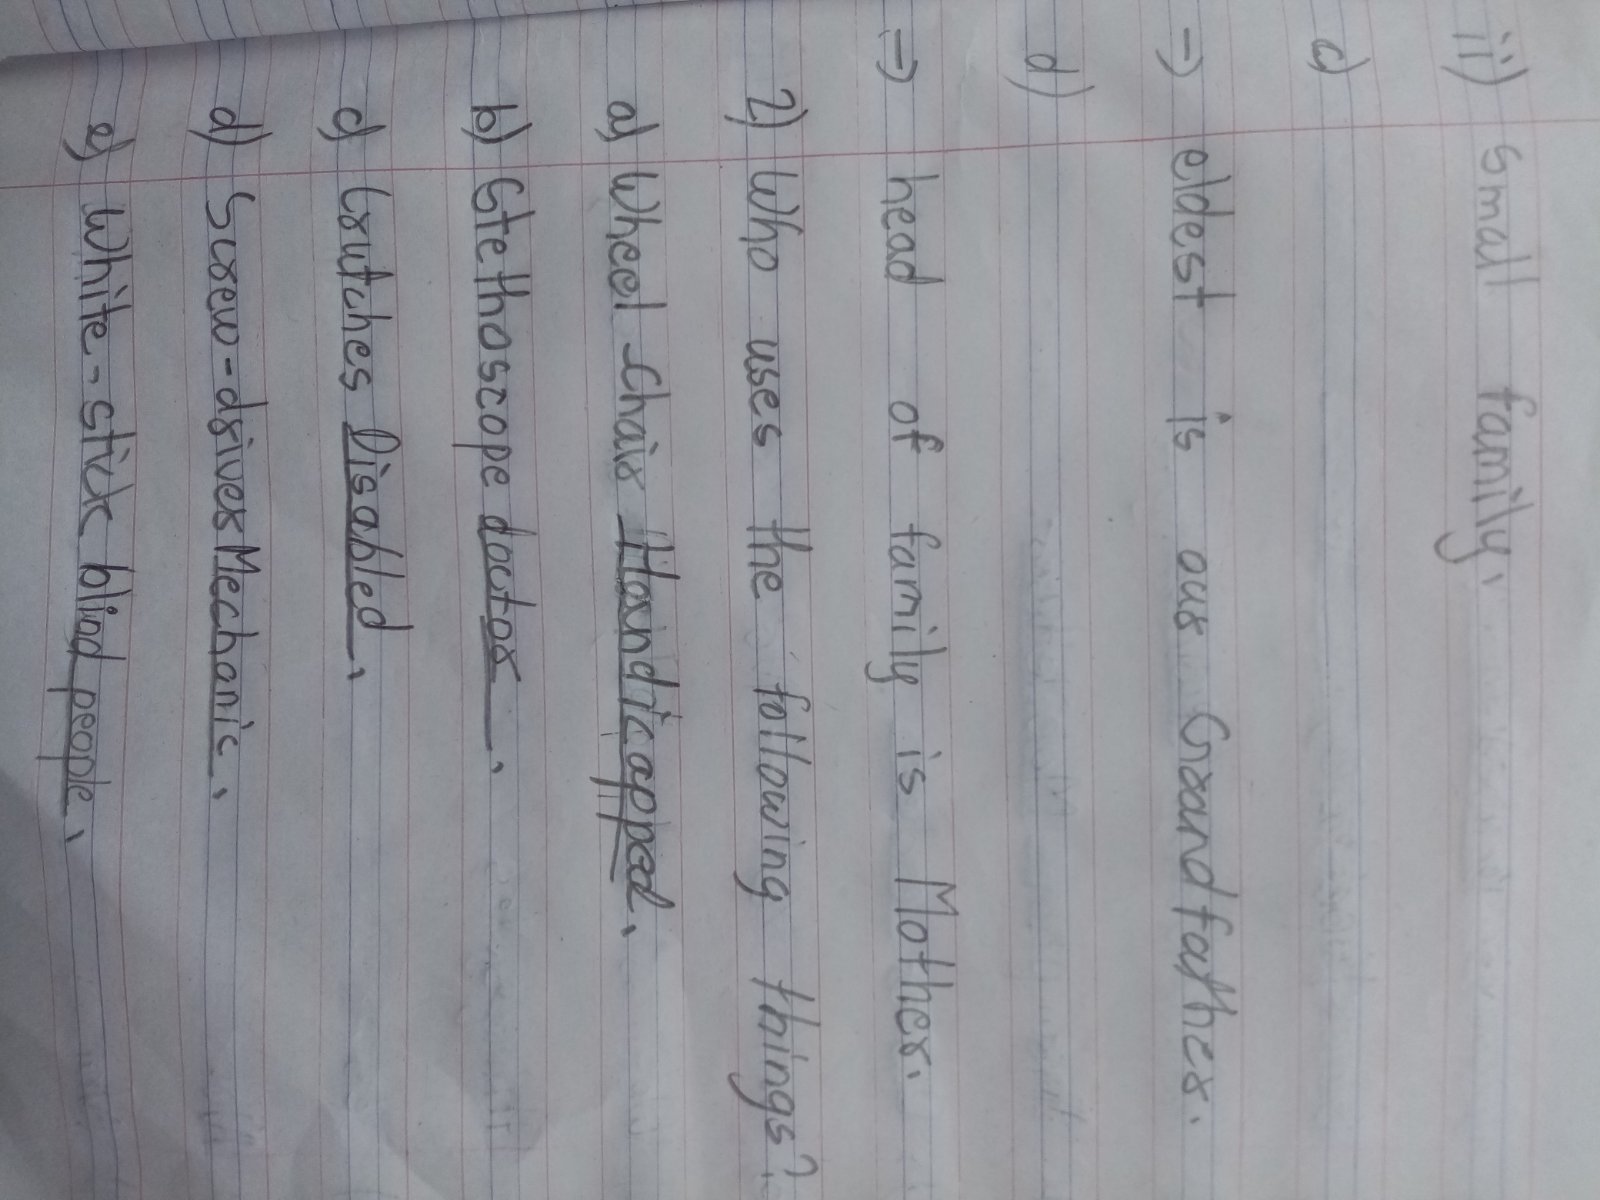 ii) small family.
c)
→ eldest is our Grandfather.
d)
→ head of family is Mother.
2) Who uses the following things?
a) Wheel chair Handicapped.
b) Stethoscope doctor.
c) Crutches Disabled.
d) Screw-driver Mechanic.
e) White-stick blind people.